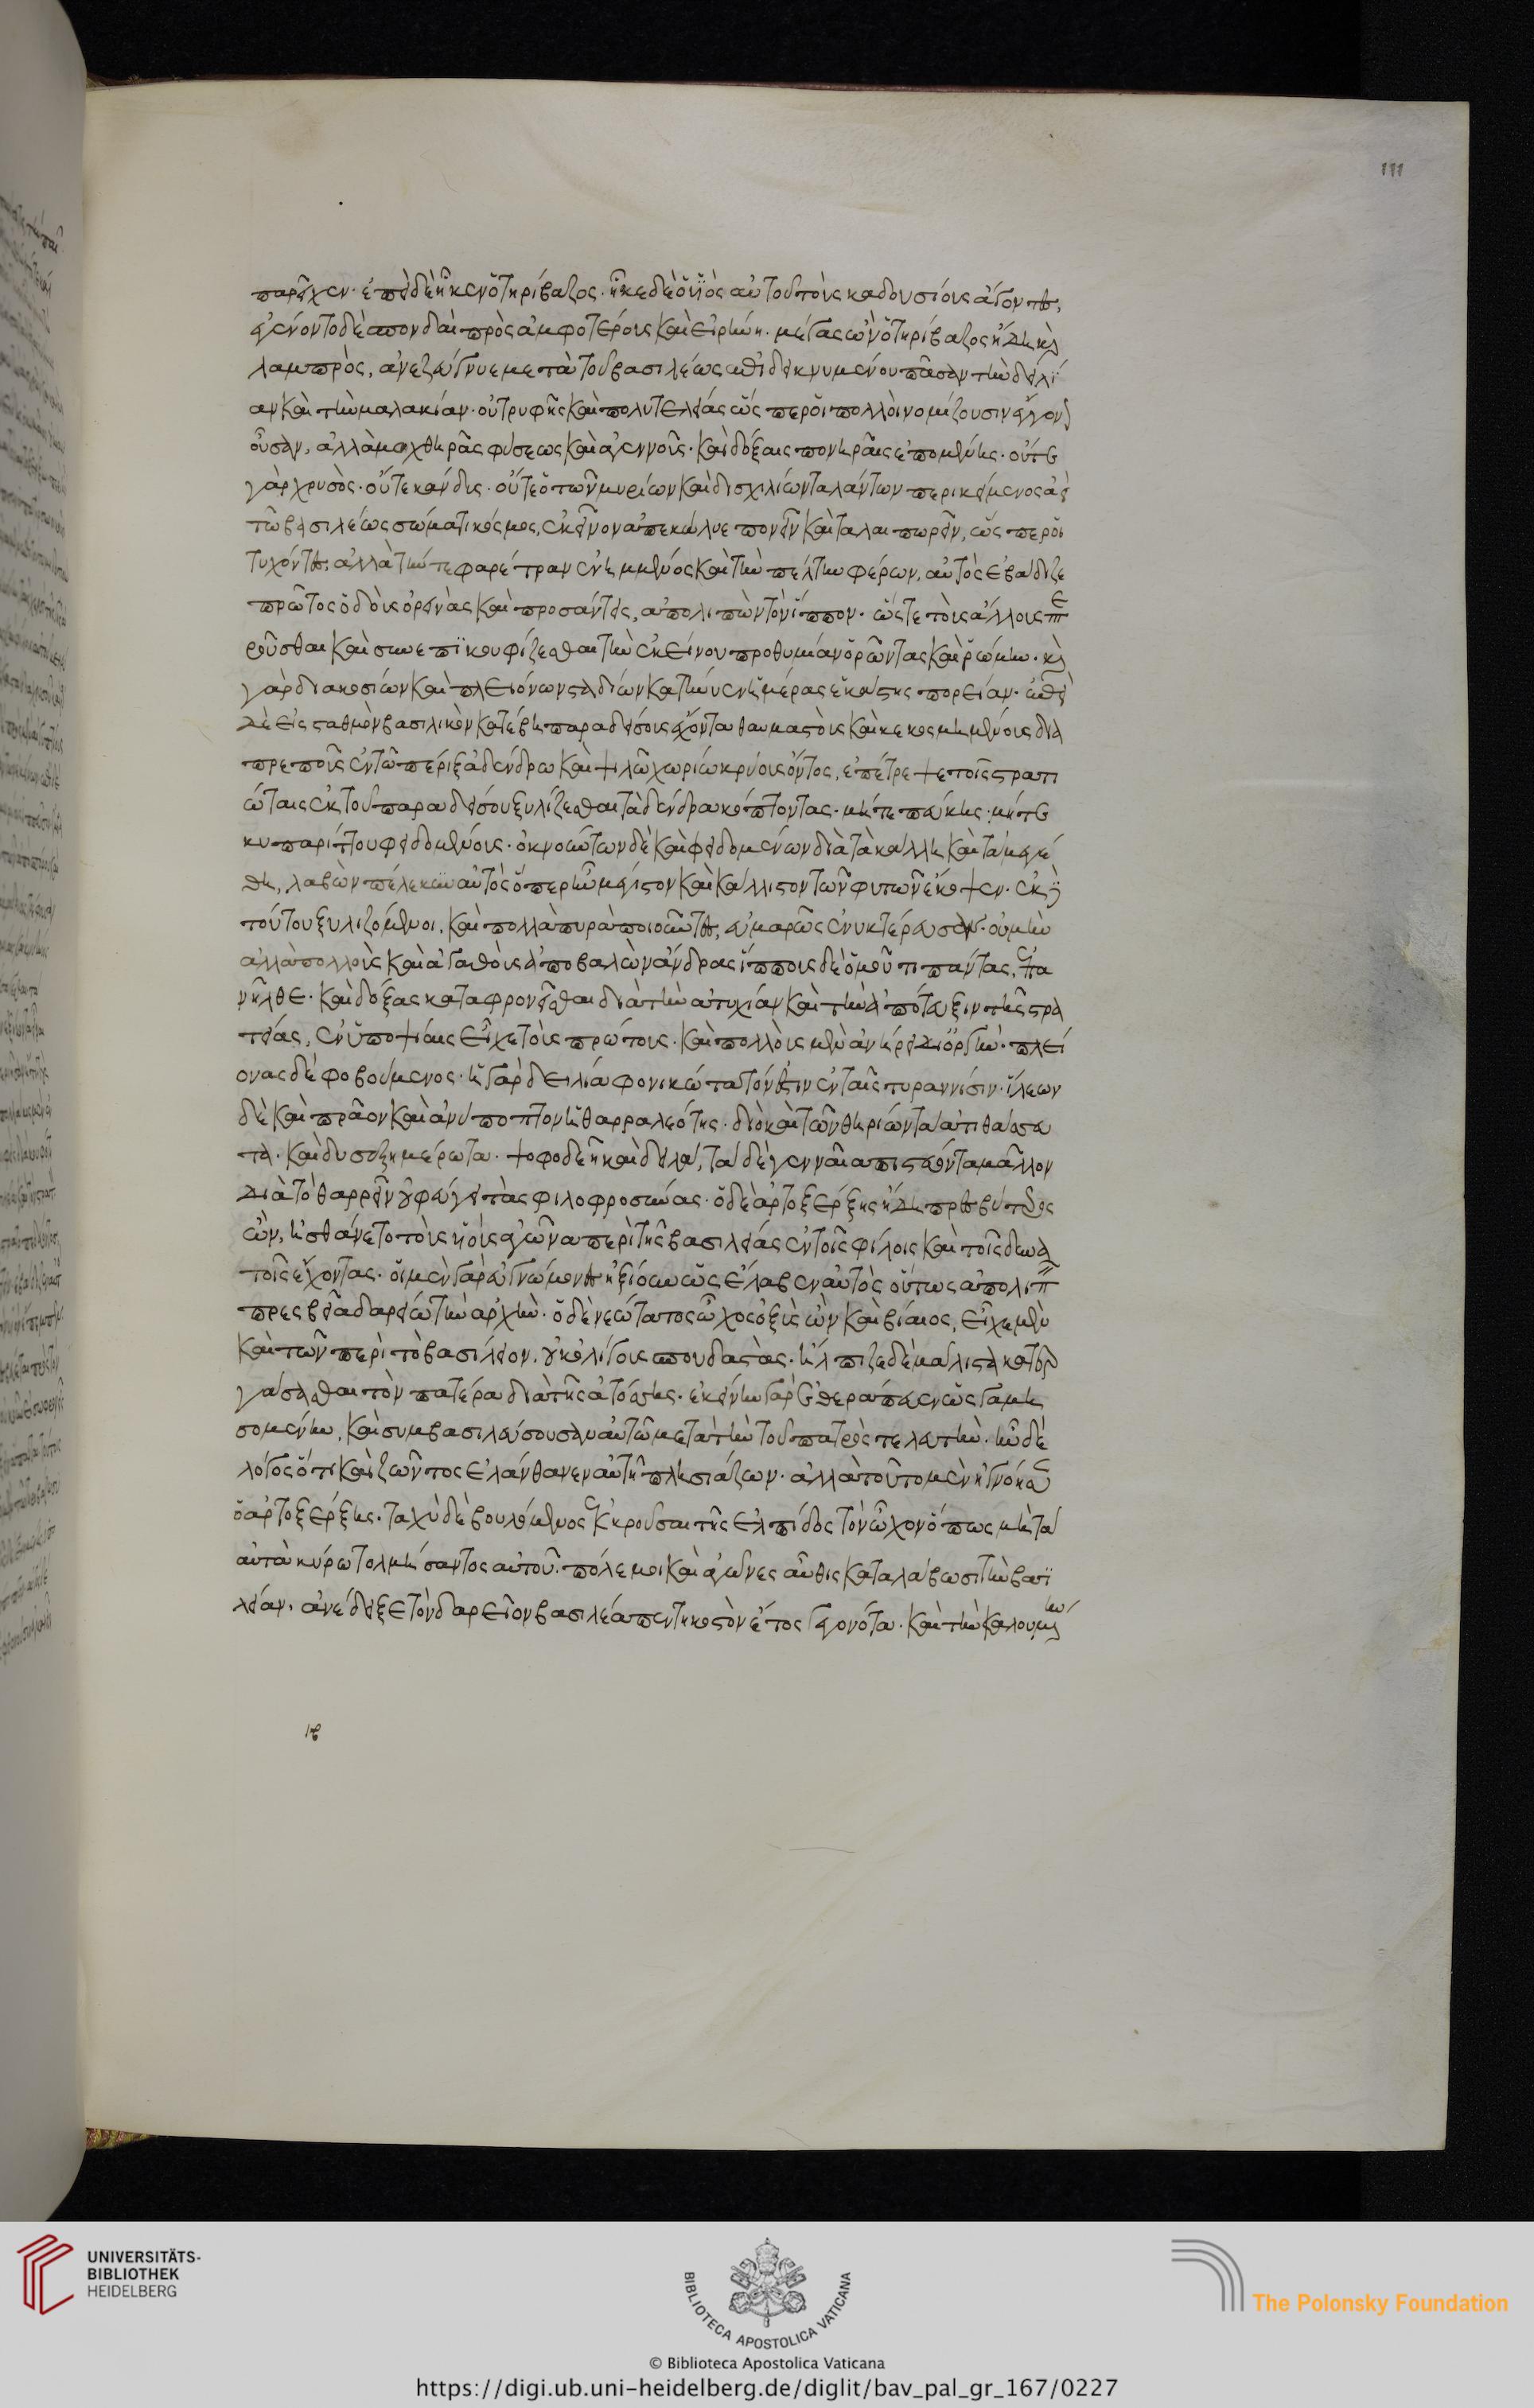 111
παρεῖχεν· ἐπεὶ δὲ ἧκεν ὁ τηρίβαζος· ἧκε δὲ ὁ υἱὸς αὐτοῦ τοὺς καδουσίους ἄγοντες,
ἐγένοντο δὲ σπονδαὶ πρὸς ἀμφοτέρους καὶ εἰρήνη. μέγας ὢν ὁ τηρίβαζος ἤδη καὶ
λαμπρὸς, ἀνεζεύγνυε μετὰ τοῦ βασιλέως ἐπιδεικνυμένου πᾶσαν τὴν δειλί
αν καὶ τὴν μαλακίαν· οὐ τρυφῆς καὶ πολυτελείας ὥσπερ οἱ πολλοὶ νομίζουσιν ἔγγονον
οὖσαν, ἀλλὰ μοχθηρᾶς φύσεως καὶ ἀγεννοῦς· καὶ δόξαις πονηραῖς ἑπομένης· οὔτε
γὰρ χρυσὸς· οὔτε κάνδυς· οὔτε ὁ τῶν μυρίων καὶ δισχιλίων ταλάντων περικείμενος ἀεὶ
τῶ βασιλέως σώματι κόσμος, ἐκεῖνον ἀπεκώλυε πονεῖν καὶ ταλαιπωρεῖν, ὥσπερ οἱ
τυχόντες, ἀλλὰ τήν τε φαρέτραν ἐνημμένος καὶ τὴν πέλτην φέρων, αὐτὸς ἐβάδιζε
πρῶτος ὁδοὺς ὀρεινὰς καὶ προσάντεις, ἀπολιπὼν τὸν ἵππον· ὥστε τοὺς ἄλλους πτε
ροῦσθαι καὶ συνεπικουφίζεσθαι τὴν ἐκείνου προθυμίαν ὁρῶντας καὶ ῥώμην· καὶ
γὰρ διακοσίων καὶ πλειόνων σταδίων κατήνυεν ἡμέρας ἑκάστης πορείαν· ἐπεὶ
δὲ εἰς σταθμὸν βασιλικὸν κατέβη παραδείσους ἔχοντα θαυμαστοὺς καὶ κεκοσμημένους δια
πρεπῶς ἐν τῶ πέριξ ἀδένδρω καὶ ψιλῶ χωρίω κρύους ὄντος, ἐπέτρεψε τοῖς στρατι
ώταις ἐκ τοῦ παραδείσου ξυλίζεσθαι τὰ δένδρα κόπτοντας· μήτε πεύκης· μήτε
κυπαρίττου φειδομένους· ὀκνούντων δὲ καὶ φειδομένων διὰ τὰ κάλλη καὶ τὰ μεγέ
θη, λαβὼν πέλεκυν αὐτὸς ὅπερ ἦν μέγιστον καὶ κάλλιστον τῶν φυτῶν ἔκοψεν· ἐκ δὲ
τούτου ξυλιζόμενοι, καὶ πολλὰ πυρὰ ποιοῦντες, εὐμαρῶς ἐνυκτέρευσαν· οὐ μὴν
ἀλλὰ πολλοὺς καὶ ἀγαθοὺς ἀποβαλὼν ἄνδρας ἵππους δὲ ὁμοῦ τι πάντας, ἐπα
νῆλθε· καὶ δόξας καταφρονεῖσθαι διὰ τὴν ἀτυχίαν καὶ τὴν ἀπότευξιν τῆς στρα
τείας, ἐν ὑποψίαις εἶχε τοὺς πρώτους· καὶ πολλοὺς μὲν ἀνήρει δι' ὀργὴν· πλεί
ονας δὲ φοβούμενος· ἡ γὰρ δειλία φονικώτατόν ἐστιν ἐν ταῖς τυραννίσιν· ἵλεων
δὲ καὶ πρᾶον καὶ ἀνύποπτον ἡ θαρραλεότης· διὸ καὶ τῶν θηρίων τὰ ἀτιθάσσευ
τα· καὶ δυσεξημέρωτα· ψοφοδεῆ καὶ δειλά, τὰ δὲ γενναῖα πιστεύοντα μᾶλλον
διὰ τὸ θαρρεῖν οὐ φεύγει τὰς φιλοφροσύνας· ὁ δὲ ἀρτοξέρξης ἤδη πρεσβύτερος
ὢν, ἠσθάνετο τοὺς υἱοὺς ἀγῶνα περὶ τῆς βασιλείας ἐν τοῖς φίλοις καὶ τοῖς δυνα
τοῖς ἔχοντας· οἱ μὲν γὰρ εὐγνώμονες ἠξίουν ὡς ἔλαβεν αὐτὸς οὕτως ἀπολιπεῖν
πρεσβεῖα δαρείω τὴν ἀρχὴν· ὁ δὲ νεώτατος ὦχος ὀξὺς ὢν καὶ βίαιος, εἶχε μὲν
καὶ τῶν περὶ τὸ βασίλειον οὐκ ὀλίγους σπουδαστὰς· ἤλπιζε δὲ μάλιστα κατερ
γάσεσθαι τὸν πατέρα διὰ τῆς ἀτόσσης· ἐκείνην γὰρ ἐθεράπευεν ὡς γαμη
σομένην, καὶ συμβασιλεύσουσαν αὐτῶ μετὰ τὴν τοῦ πατρὸς τελευτὴν· ἦν δὲ
λόγος ὅτι καὶ ζῶντος ἐλάνθανεν αὐτῆ πλησιάζων· ἀλλὰ τοῦτο μὲν ἠγνόησεν
ὁ ἀρτοξέρξης· ταχὺ δὲ βουλόμενος ἐκκροῦσαι τῆς ἐλπίδος τὸν ὦχον ὅπως μὴ τὰ
αὐτὰ κύρω τολμήσαντος αὐτοῦ· πόλεμοι καὶ ἀγῶνες αὖθις καταλάβωσι τὴν βασι
λείαν, ἀνέδειξε τὸν δαρεῖον βασιλέα πεντηκοστὸν ἔτος γεγονότα· καὶ τὴν καλουμένην
UNIVERSITÄTS-
BIBLIOTHEK
HEIDELBERG
BIBLIOTECA APOSTOLICA VATICANA
The Polonsky Foundation
© Biblioteca Apostolica Vaticana
https://digi.ub.uni-heidelberg.de/diglit/bav_pal_gr_167/0227